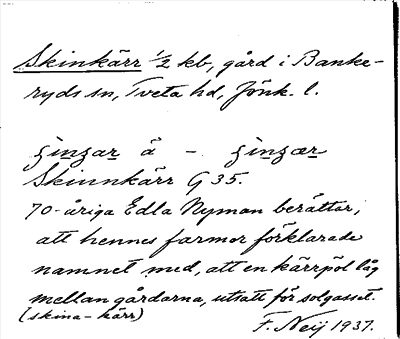 Skinkärr ½ kb, gård i Banke-
ryds sn, Tveta hd, Jönk. l.
å -
Skinnkärr G 35.
70-åriga Edla Nyman berättar,
att hennes farmor förklarade
namnet med, att en kärrpöl låg
mellan gårdarna, utsatt för solgasset.
(skina-kärr)
F. Neij 1937.